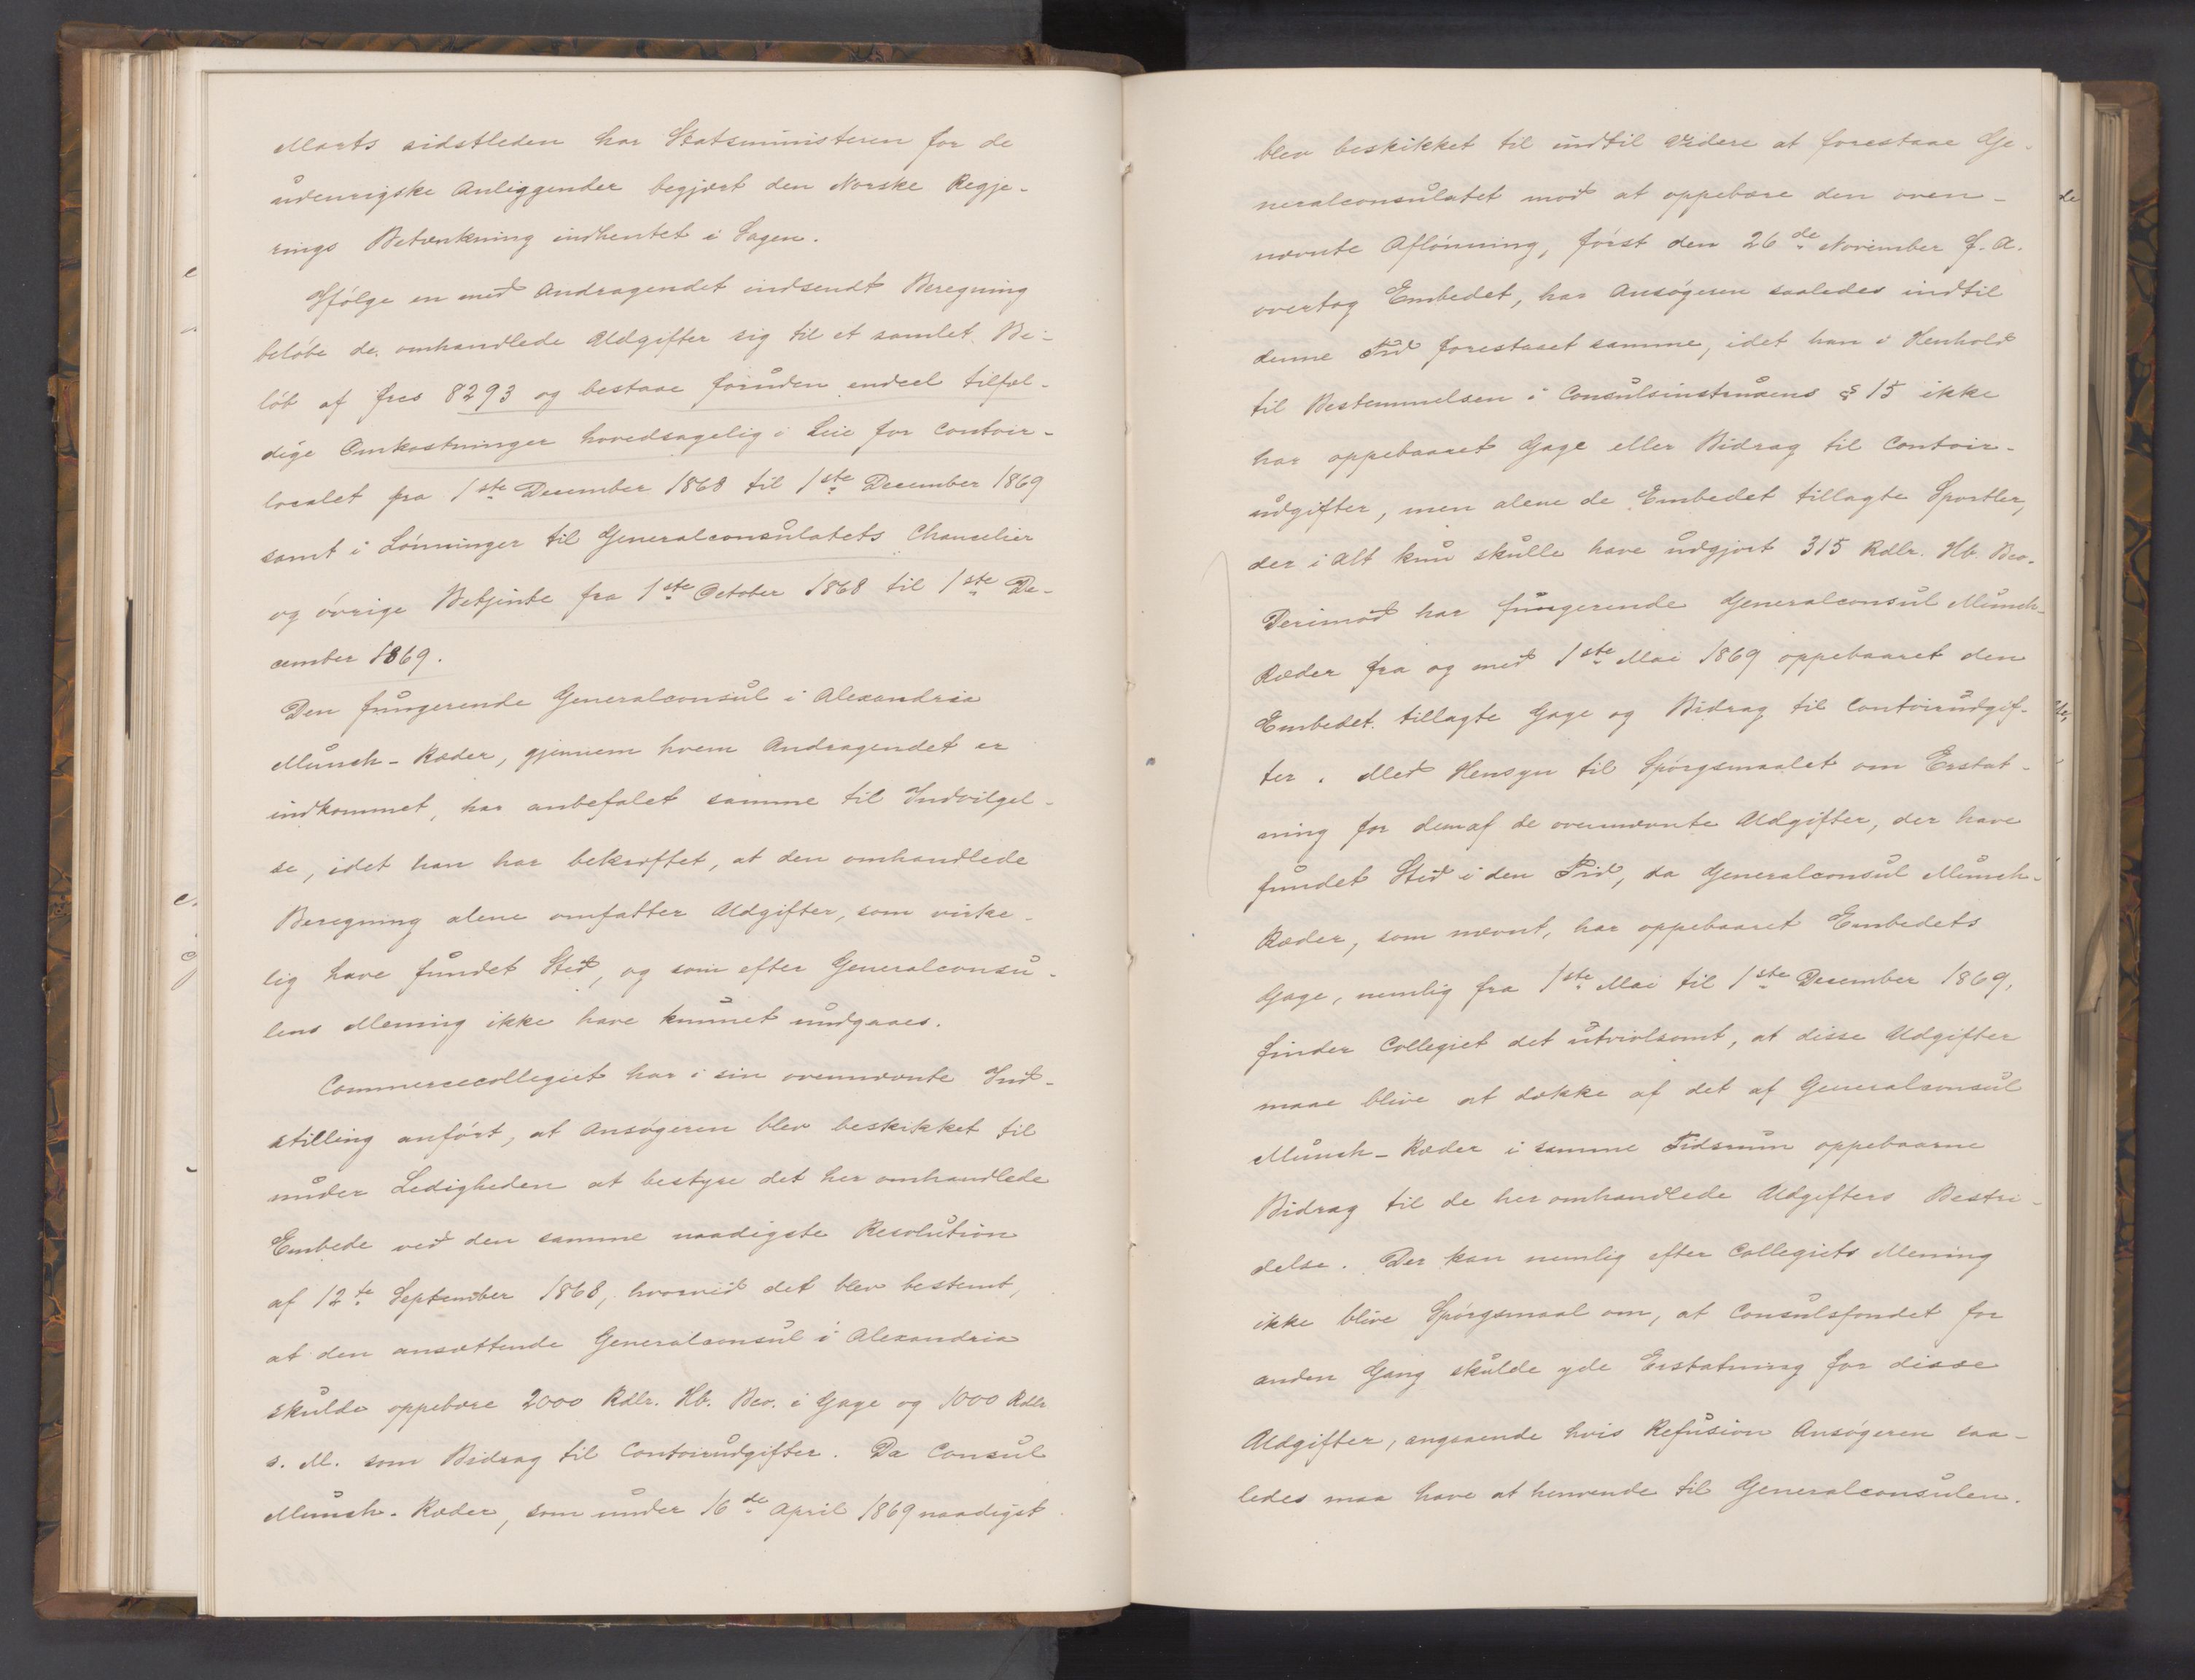 Marts sidstleden har Statsministeren for de
udenrigske Anliggender begjært den Norske Regje-
rings Betænkning indhentet i Sagen.
Ifölge en med Andragendet indsendt Beregning
beløbe de omhandlede Udgifter sig til et samlet Be-
löb af frcs 8293 og bestaae foruden endeel tilfæl-
dige Omkostninger hovedsagelig i Leie for Contoir-
localet fra 1ste December 1868 til 1ste December 1869
samt i Lönninger til Generalconsulatets Chancelier
og övrige Betjente fra 1ste October 1868 til 1ste De-
cember 1869.
Den fungerende Generalconsul i Alexandria
Munch-Ræder, gjennem hvem Andragendet er
indkommet, har anbefalet samme til Indvilgel-
se, idet han har bekræftet, at den omhandlede
Beregning alene omfatter Udgifter, som virke-
lig have fundet Sted, og som efter Generalconsu-
lens Mening ikke have kunnet undgaaes.
Commercecollegiet har i sin ovennævnte Ind-
stilling anfört, at Ansögeren blev beskikket til
under Ledigheden at bestyre det her omhandlede
Embede ved den samme naadigste Resolution
af 12te September 1868, hvorved det blev bestemt,
at den ansættende Generalconsul i Alexandria
skulde oppebære 2000 Rdlr. Hb. Bco. i Gage og 1000 Rdlr
s. M. som Bidrag til Contoirudgifter. Da Consul
Munch-Ræder, som under 16de April 1869 naadigst
blev beskikket til indtil videre at forestaae Ge-
neralconsulatet mod at oppebære den oven-
nævnte Aflönning, först den 26de November f. A.
overtog Embedet, har Ansögeren saaledes indtil
denne Tid forestaaet samme, idet han i Henhold
til Bestemmelsen i Consulsinstruxens § 15 ikke
har oppebaaret Gage eller Bidrag til Contoir-
udgifter, men alene de Embedet tillagte Sportler,
der i Alt kun skulle have udgjort 315 Rdlr. Hb. Bco.
Derimod har fungerende Generalconsul Munch-
Ræder fra og med 1ste Mai 1869 oppebaaret den
Embedet tillagte Gage og Bidrag til Contoirudgif-
ter. Med Hensyn til Spörgsmaalet om Erstat-
ning for dem af de ovennævnte Udgifter, der have
fundet Sted i den Tid, da Generalconsul Munch-
Ræder, som nævnt, har oppebaaret Embedets
Gage, nemlig fra 1ste Mai til 1ste December 1869,
finder Collegiet det utvivlsomt, at disse Udgifter
maae blive at dække af det af Generalconsul
Munch-Ræder i samme Tidsrum oppebaarne
Bidrag til de her omhandlede Udgifters Bestri-
delse. Der kan nemlig efter Collegiets Mening
ikke blive Spörgsmaal om, at Consulsfondet for
anden Gang skulde yde Erstatning for disse
Udgifter, angaaende hvis Refusion Ansögeren saa-
ledes maa have at henvende til Generalconsulen.